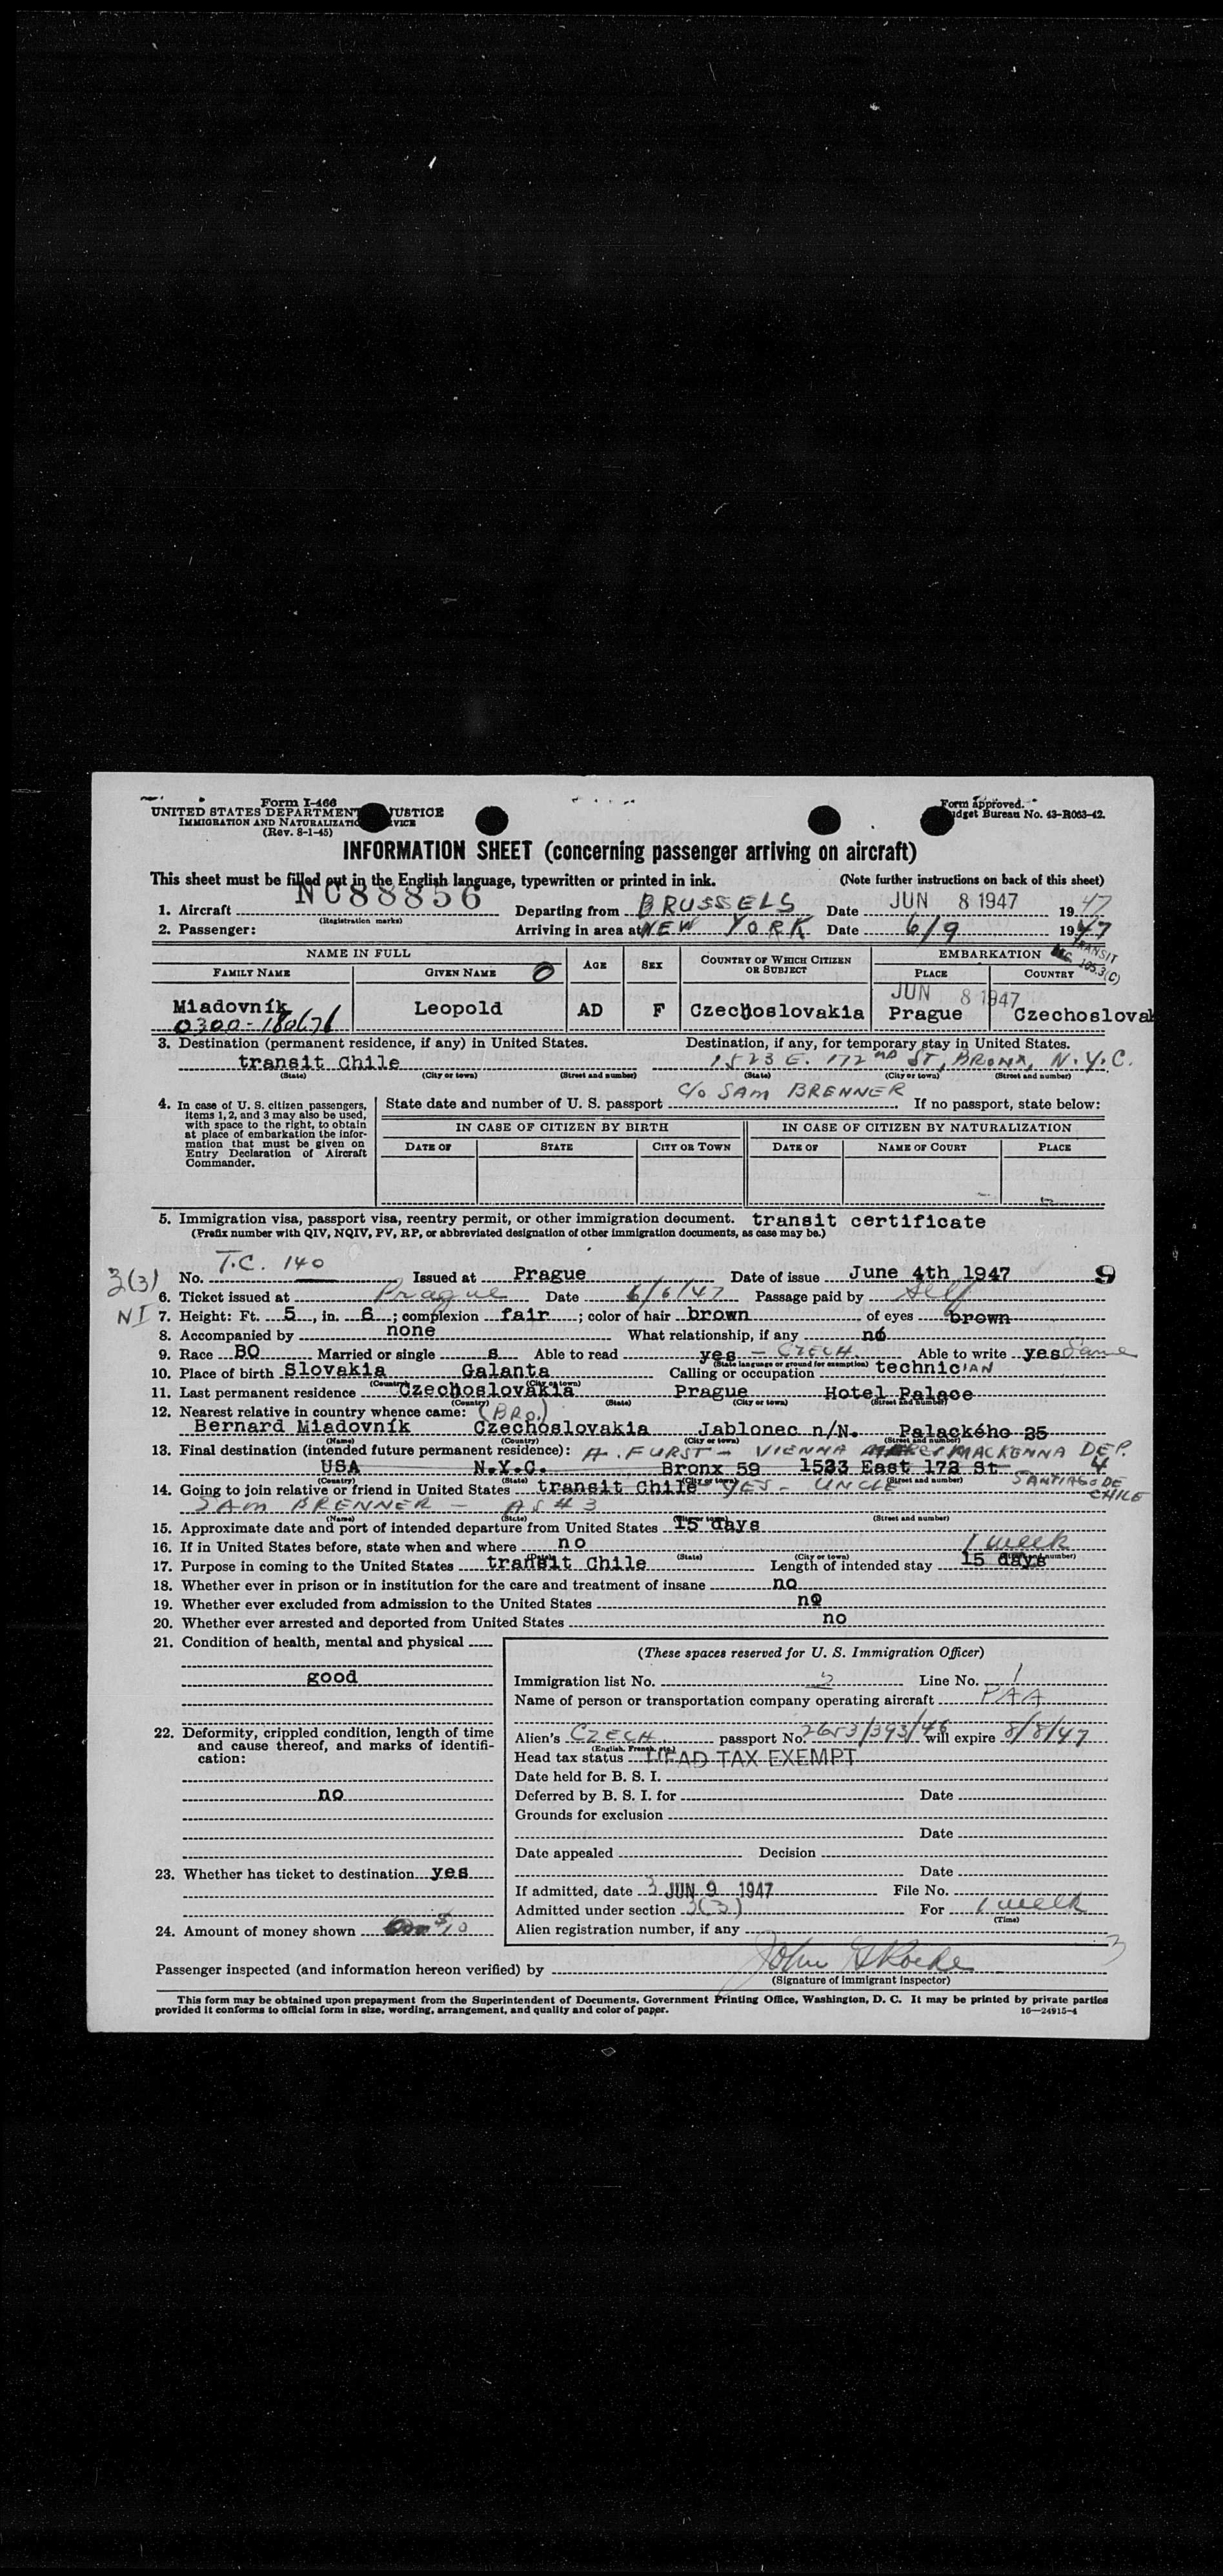 Form I-466
UNITED STATES DEPARTMENT JUSTICE
IMMIGRATION AND NATURALIZATIO VICE
(Rev. 8-1-45)
Form approved.
dget Bureau No. 43-R063-42.
INFORMATION SHEET (concerning passenger arriving on aircraft)
This sheet must be filled out in the English language, typewritten or printed in ink. (Note further instructions on back of this sheet)
1. Aircraft NC88856 (Registration marks) Departing from BRUSSELS Date JUN 8 1947 1947
2. Passenger: Arriving in area at NEW YORK Date 6/9 1947
NAME IN FULL AGE SEX COUNTRY OF WHICH CITIZEN OR SUBJECT EMBARKATION
FAMILY NAME GIVEN NAME PLACE COUNTRY
TRANSIT
SEC. 105.3(C)
JUN 8 1947
Mladovník Leopold AD F Czechoslovakia Prague Czechoslovak
0300-180676
3. Destination (permanent residence, if any) in United States. Destination, if any, for temporary stay in United States.
transit Chile 1523 E. 172ND ST, BRONX, N.Y.C.
(State) (City or town) (Street and number) (State) (City or town) (Street and number)
C/O SAM BRENNER
4. In case of U. S. citizen passengers, items 1, 2, and 3 may also be used, with space to the right, to obtain at place of embarkation the information that must be given on Entry Declaration of Aircraft Commander.
State date and number of U. S. passport If no passport, state below:
IN CASE OF CITIZEN BY BIRTH IN CASE OF CITIZEN BY NATURALIZATION
DATE OF STATE CITY OR TOWN DATE OF NAME OF COURT PLACE
5. Immigration visa, passport visa, reentry permit, or other immigration document. transit certificate
(Prefix number with QIV, NQIV, PV, RP, or abbreviated designation of other immigration documents, as case may be.)
3(3)
NI
No. T.C. 140 Issued at Prague Date of issue June 4th 1947 9
6. Ticket issued at Prague Date 6/6/47 Passage paid by Self
7. Height: Ft. 5, in. 6; complexion fair; color of hair brown of eyes brown
8. Accompanied by none What relationship, if any no
9. Race BO Married or single s Able to read yes - CZECH Able to write yes Same
(State language or ground for exemption)
10. Place of birth Slovakia Galanta Calling or occupation technicIAN
(Country) (City or town)
11. Last permanent residence Czechoslovakia Prague Hotel Palace
(Country) (State) (City or town) (Street and number)
12. Nearest relative in country whence came: (BRO.)
Bernard Mladovník Czechoslovakia Jablonec n/N. Palackého 25
(Name) (Country) (City or town) (Street and number)
13. Final destination (intended future permanent residence): A. FURST - VIENNA MACKENNA DEP. 4
USA N.Y.C. Bronx 59 1533 East 172 St SANTIAGO DE CHILE
(Country) (State) (City or town) (Street and number)
14. Going to join relative or friend in United States transit Chile YES - UNCLE
SAM BRENNER - AS #3
(Name) (State) (City or town) (Street and number)
15. Approximate date and port of intended departure from United States 15 days
16. If in United States before, state when and where no 1 week
(Date) (State) (City or town) (Street and number)
17. Purpose in coming to the United States transit Chile Length of intended stay 15 days
18. Whether ever in prison or in institution for the care and treatment of insane no
19. Whether ever excluded from admission to the United States no
20. Whether ever arrested and deported from United States no
21. Condition of health, mental and physical
good
22. Deformity, crippled condition, length of time and cause thereof, and marks of identification:
no
23. Whether has ticket to destination yes
24. Amount of money shown $10
(These spaces reserved for U. S. Immigration Officer)
Immigration list No. 5 Line No. 1
Name of person or transportation company operating aircraft PAA
Alien's CZECH passport No. 2653/393/46 will expire 8/8/47
(English, French, etc.)
Head tax status HEAD TAX EXEMPT
Date held for B. S. I.
Deferred by B. S. I. for Date
Grounds for exclusion
Date
Date appealed Decision
Date
If admitted, date JUN 9 1947 File No.
Admitted under section 3(3) For 1 week
(Time)
Alien registration number, if any
Passenger inspected (and information hereon verified) by
(Signature of immigrant inspector)
This form may be obtained upon prepayment from the Superintendent of Documents, Government Printing Office, Washington, D. C. It may be printed by private parties
provided it conforms to official form in size, wording, arrangement, and quality and color of paper. 16—24915-4